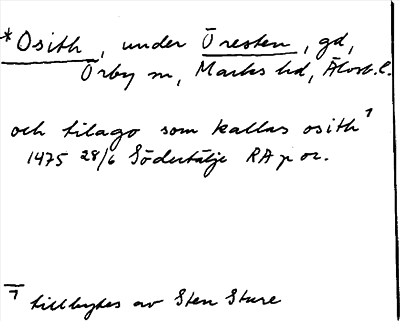 *Osith, under Öresten, gd,
Örby sn, Marks hd, Älvsb. l.
och tilago som kallas osith ¹
1475 28/6 Södertälje RA p or.
¹ tillbytes av Sten Sture